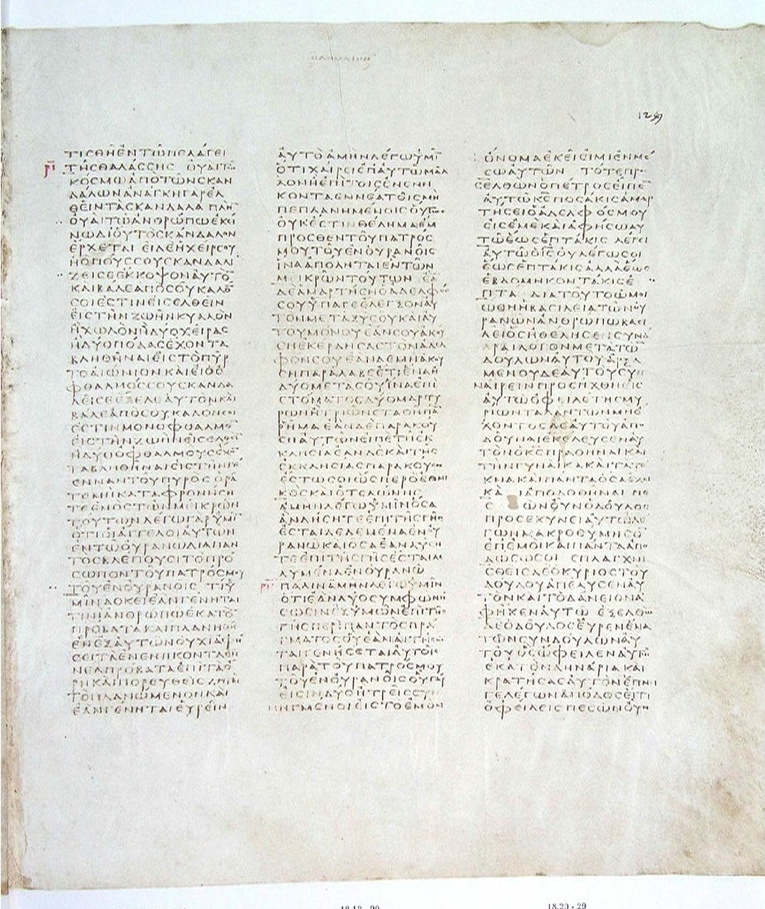 ΤΙϹΘΗΕΝΤΩΠΕΛΑΓΕΙ
ΤΗϹΘΑΛΑϹϹΗϹ ΟΥΑΙΤΩ
ΚΟϹΜΩΑΠΟΤΩΝϹΚΑΝ
ΔΑΛΩΝΑΝΑΓΚΗΓΑΡΕΛ
ΘΕΙΝΤΑϹΚΑΝΔΑΛΑ ΠΛΗ
ΟΥΑΙΤΩΑΝΘΡΩΠΩΕΚΕΙ
ΝΩΔΙΟΥΤΟϹΚΑΝΔΑΛΟΝ
ΕΡΧΕΤΑΙ ΕΙΔΕΗΧΕΙΡϹΟΥ
ΗΟΠΟΥϹϹΟΥϹΚΑΝΔΑΛΙ
ΖΕΙϹΕΕΚΚΟΨΟΝΑΥΤΟ
ΚΑΙΒΑΛΕΑΠΟϹΟΥΚΑΛΟ
ϹΟΙΕϹΤΙΝΕΙϹΕΛΘΕΙΝ
ΕΙϹΤΗΝΖΩΗΝΚΥΛΛΟΝ
ΗΧΩΛΟΝΗΔΥΟΧΕΙΡΑϹ
ΗΔΥΟΠΟΔΑϹΕΧΟΝΤΑ
ΒΛΗΘΗΝΑΙΕΙϹΤΟΠΥΡ
ΤΟΑΙΩΝΙΟΝΚΑΙΕΙΟΟ
ΦΘΑΛΜΟϹϹΟΥϹΚΑΝΔΑ
ΛΕΙϹΕΕΞΕΛΕΑΥΤΟΝΚΑΙ
ΒΑΛΕΑΠΟϹΟΥΚΑΛΟΝϹΟΙ
ΕϹΤΙΝΜΟΝΟΦΘΑΛΜΟ
ΕΙϹΤΗΝΖΩΗΝΕΙϹΕΛΘΕΙ
ΗΔΥΟΟΦΘΑΛΜΟΥϹΕΧΟ
ΤΑΒΛΗΘΗΝΑΙΕΙϹΤΗΝΓΕ
ΕΝΝΑΝΤΟΥΠΥΡΟϹ ΟΡΑ
ΤΕΜΗΚΑΤΑΦΡΟΝΗϹΗ
ΤΕΕΝΟϹΤΩΝΜΕΙΚΡΩΝ
ΤΟΥΤΩΝΛΕΓΩΓΑΡΥΜΙ
ΟΤΙΟΙΑΓΓΕΛΟΙΑΥΤΩΝ
ΕΝΤΩΟΥΡΑΝΩΔΙΑΠΑΝ
ΤΟϹΒΛΕΠΟΥϹΙΤΟΠΡΟ
ϹΩΠΟΝΤΟΥΠΑΤΡΟϹΜΟΥ
ΤΟΥΕΝΟΥΡΑΝΟΙϹ ΤΙΥ
ΜΙΝΔΟΚΕΙΕΑΝΓΕΝΗΤΑΙ
ΤΙΝΙΑΝΘΡΩΠΩΕΚΑΤΟ
ΠΡΟΒΑΤΑΚΑΙΠΛΑΝΗ
ΕΝΕΞΑΥΤΩΝΟΥΧΙΑΦΗ
ϹΕΙΤΑΕΝΕΝΗΚΟΝΤΑΕΝ
ΝΕΑΠΡΟΒΑΤΑΕΠΙΤΑΟ
ΡΗΚΑΙΠΟΡΕΥΘΕΙϹΖΗΤΕΙ
ΤΟΠΛΑΝΩΜΕΝΟΝΚΑΙ
ΕΑΝΓΕΝΗΤΑΙΕΥΡΕΙΝ
ΑΥΤΟΑΜΗΝΛΕΓΩΥΜΙ
ΟΤΙΧΑΙΡΕΙΕΠΑΥΤΩΜΑΛ
ΛΟΝΗΕΠΙΤΟΙϹΕΝΕΝΗ
ΚΟΝΤΑΕΝΝΕΑΤΟΙϹΜΗ
ΠΕΠΛΑΝΗΜΕΝΟΙϹΟΥΤΩϹ
ΟΥΚΕϹΤΙΝΘΕΛΗΜΑΕΜ
ΠΡΟϹΘΕΝΤΟΥΠΑΤΡΟϹ
ΜΟΥΤΟΥΕΝΟΥΡΑΝΟΙϹ
ΙΝΑΑΠΟΛΗΤΑΙΕΝΤΩΝ
ΜΕΙΚΡΩΝΤΟΥΤΩΝ ΕΑ
ΔΕΑΜΑΡΤΗϹΗΟΑΔΕΛΦΟϹ
ϹΟΥΥΠΑΓΕΕΛΕΓΞΟΝΑΥ
ΤΟΝΜΕΤΑΞΥϹΟΥΚΑΙΑΥ
ΤΟΥΜΟΝΟΥ ΕΑΝϹΟΥΑΚΟΥ
ϹΗΕΚΕΡΔΗϹΑϹΤΟΝΑΔΕΛ
ΦΟΝϹΟΥΕΑΝΔΕΜΗΑΚΟΥ
ϹΗΠΑΡΑΛΑΒΕΕΤΙΕΝΑΗ
ΔΥΟΜΕΤΑϹΟΥΙΝΑΕΠΙ
ϹΤΟΜΑΤΟϹΔΥΟΜΑΡΤΥ
ΡΩΝΗΤΡΙΩΝϹΤΑΘΗΠΑ
ΡΗΜΑ ΕΑΝΔΕΠΑΡΑΚΟΥ
ϹΗΑΥΤΩΝΕΙΠΕΤΗΕΚ
ΚΛΗϹΙΑΕΑΝΔΕΚΑΙΤΗϹ
ΕΚΚΛΗϹΙΑϹΠΑΡΑΚΟΥϹΗ
ΕϹΤΩϹΟΙΩϹΠΕΡΟΕΘΝΙ
ΚΟϹΚΑΙΟΤΕΛΩΝΗϹ
ΑΜΗΝΛΕΓΩΥΜΙΝΟϹΑ
ΑΝΔΗϹΗΤΕΕΠΙΤΗϹΓΗϹ
ΕϹΤΑΙΔΕΔΕΜΕΝΑΕΝΟΥ
ΡΑΝΩΚΑΙΟϹΑΕΑΝΛΥϹΗ
ΤΕΕΠΙΤΗϹΓΗϹΕϹΤΑΙΛΕ
ΛΥΜΕΝΑΕΝΟΥΡΑΝΩ
ΠΑΛΙΝΑΜΗΝΛΕΓΩΥΜΙΝ
ΟΤΙΕΑΝΔΥΟϹΥΜΦΩΝΗ
ϹΩϹΙΝΕΞΥΜΩΝΕΠΙΤΗϹ
ΓΗϹΠΕΡΙΠΑΝΤΟϹΠΡΑ
ΓΜΑΤΟϹΟΥΕΑΝΑΙΤΗϹΩ
ΤΑΙΓΕΝΗϹΕΤΑΙΑΥΤΟΙϹ
ΠΑΡΑΤΟΥΠΑΤΡΟϹΜΟΥ
ΤΟΥΕΝΟΥΡΑΝΟΙϹΟΥΓΑΡ
ΕΙϹΙΝΔΥΟΗΤΡΕΙϹϹΥΝ
ΗΓΜΕΝΟΙΕΙϹΤΟΕΜΟΝ
ΟΝΟΜΑΕΚΕΙΕΙΜΙΕΝΜΕ
ϹΩΑΥΤΩΝ ΤΟΤΕΠΡΟϹ
ΕΛΘΩΝΟΠΕΤΡΟϹΕΙΠΕ
ΑΥΤΩΚΕΠΟϹΑΚΙϹΑΜΑΡ
ΤΗϹΕΙΟΑΔΕΛΦΟϹΜΟΥ
ΕΙϹΕΜΕΚΑΙΑΦΗϹΩΑΥ
ΤΩΕΩϹΕΠΤΑΚΙϹ ΛΕΓΕΙ
ΑΥΤΩΟΙϹΟΥΛΕΓΩϹΟΙ
ΕΩϹΕΠΤΑΚΙϹΑΛΛΑΕΩϹ
ΕΒΔΟΜΗΚΟΝΤΑΚΙϹΕ
ΠΤΑ ΔΙΑΤΟΥΤΟΩΜΟΙ
ΩΘΗΗΒΑϹΙΛΕΙΑΤΩΝΟΥ
ΡΑΝΩΝΑΝΘΡΩΠΩΒΑϹΙ
ΛΕΙΟϹΗΘΕΛΗϹΕϹΥΝΑ
ΡΑΙΛΟΓΟΝΜΕΤΑΤΩΝ
ΔΟΥΛΩΝΑΥΤΟΥΑΡΞΑ
ΜΕΝΟΥΔΕΑΥΤΟΥϹΥΝ
ΑΙΡΕΙΝΠΡΟϹΗΧΘΗΕΙϹ
ΑΥΤΩΟΦΕΙΛΕΤΗϹΜΥ
ΡΙΩΝΤΑΛΑΝΤΩΝΜΗΕ
ΧΟΝΤΟϹΔΕΑΥΤΟΥΑΠΟ
ΔΟΥΝΑΙΕΚΕΛΕΥϹΕΝΑΥ
ΤΟΝΟΚϹΠΡΑΘΗΝΑΙΚΑΙ
ΤΗΝΓΥΝΑΙΚΑΚΑΙΤΑΤΕ
ΚΝΑΚΑΙΠΑΝΤΑΟϹΑΕΧΕΙ
ΚΑΙΑΠΟΔΟΘΗΝΑΙ ΠΕ
ϹΩΝΟΥΝΟΔΟΥΛΟϹ
ΠΡΟϹΕΚΥΝΕΙΑΥΤΩΛΕ
ΓΩΝΜΑΚΡΟΘΥΜΗϹΟ
ΕΠΕΜΟΙΚΑΙΠΑΝΤΑΑΠΟ
ΔΩϹΩϹΟΙ ϹΠΛΑΓΧΝΙ
ϹΘΕΙϹΔΕΟΚΥΡΙΟϹΤΟΥ
ΔΟΥΛΟΥΑΠΕΛΥϹΕΝΑΥ
ΤΟΝΚΑΙΤΟΔΑΝΕΙΟΝΑ
ΦΗΚΕΝΑΥΤΩ ΕΞΕΛΘΩ
ΔΕΟΔΟΥΛΟϹΕΥΡΕΝΕΝΑ
ΤΩΝϹΥΝΔΟΥΛΩΝΑΥ
ΤΟΥΟϹΩΦΕΙΛΕΝΑΥΤΩ
ΕΚΑΤΟΝΔΗΝΑΡΙΑ ΚΑΙ
ΚΡΑΤΗϹΑϹΑΥΤΟΝΕΠΝΙ
ΓΕΛΕΓΩΝΑΠΟΔΟϹΕΙΤΙ
ΟΦΕΙΛΕΙϹ ΠΕϹΩΝΟΥΝ
18.20 - 29